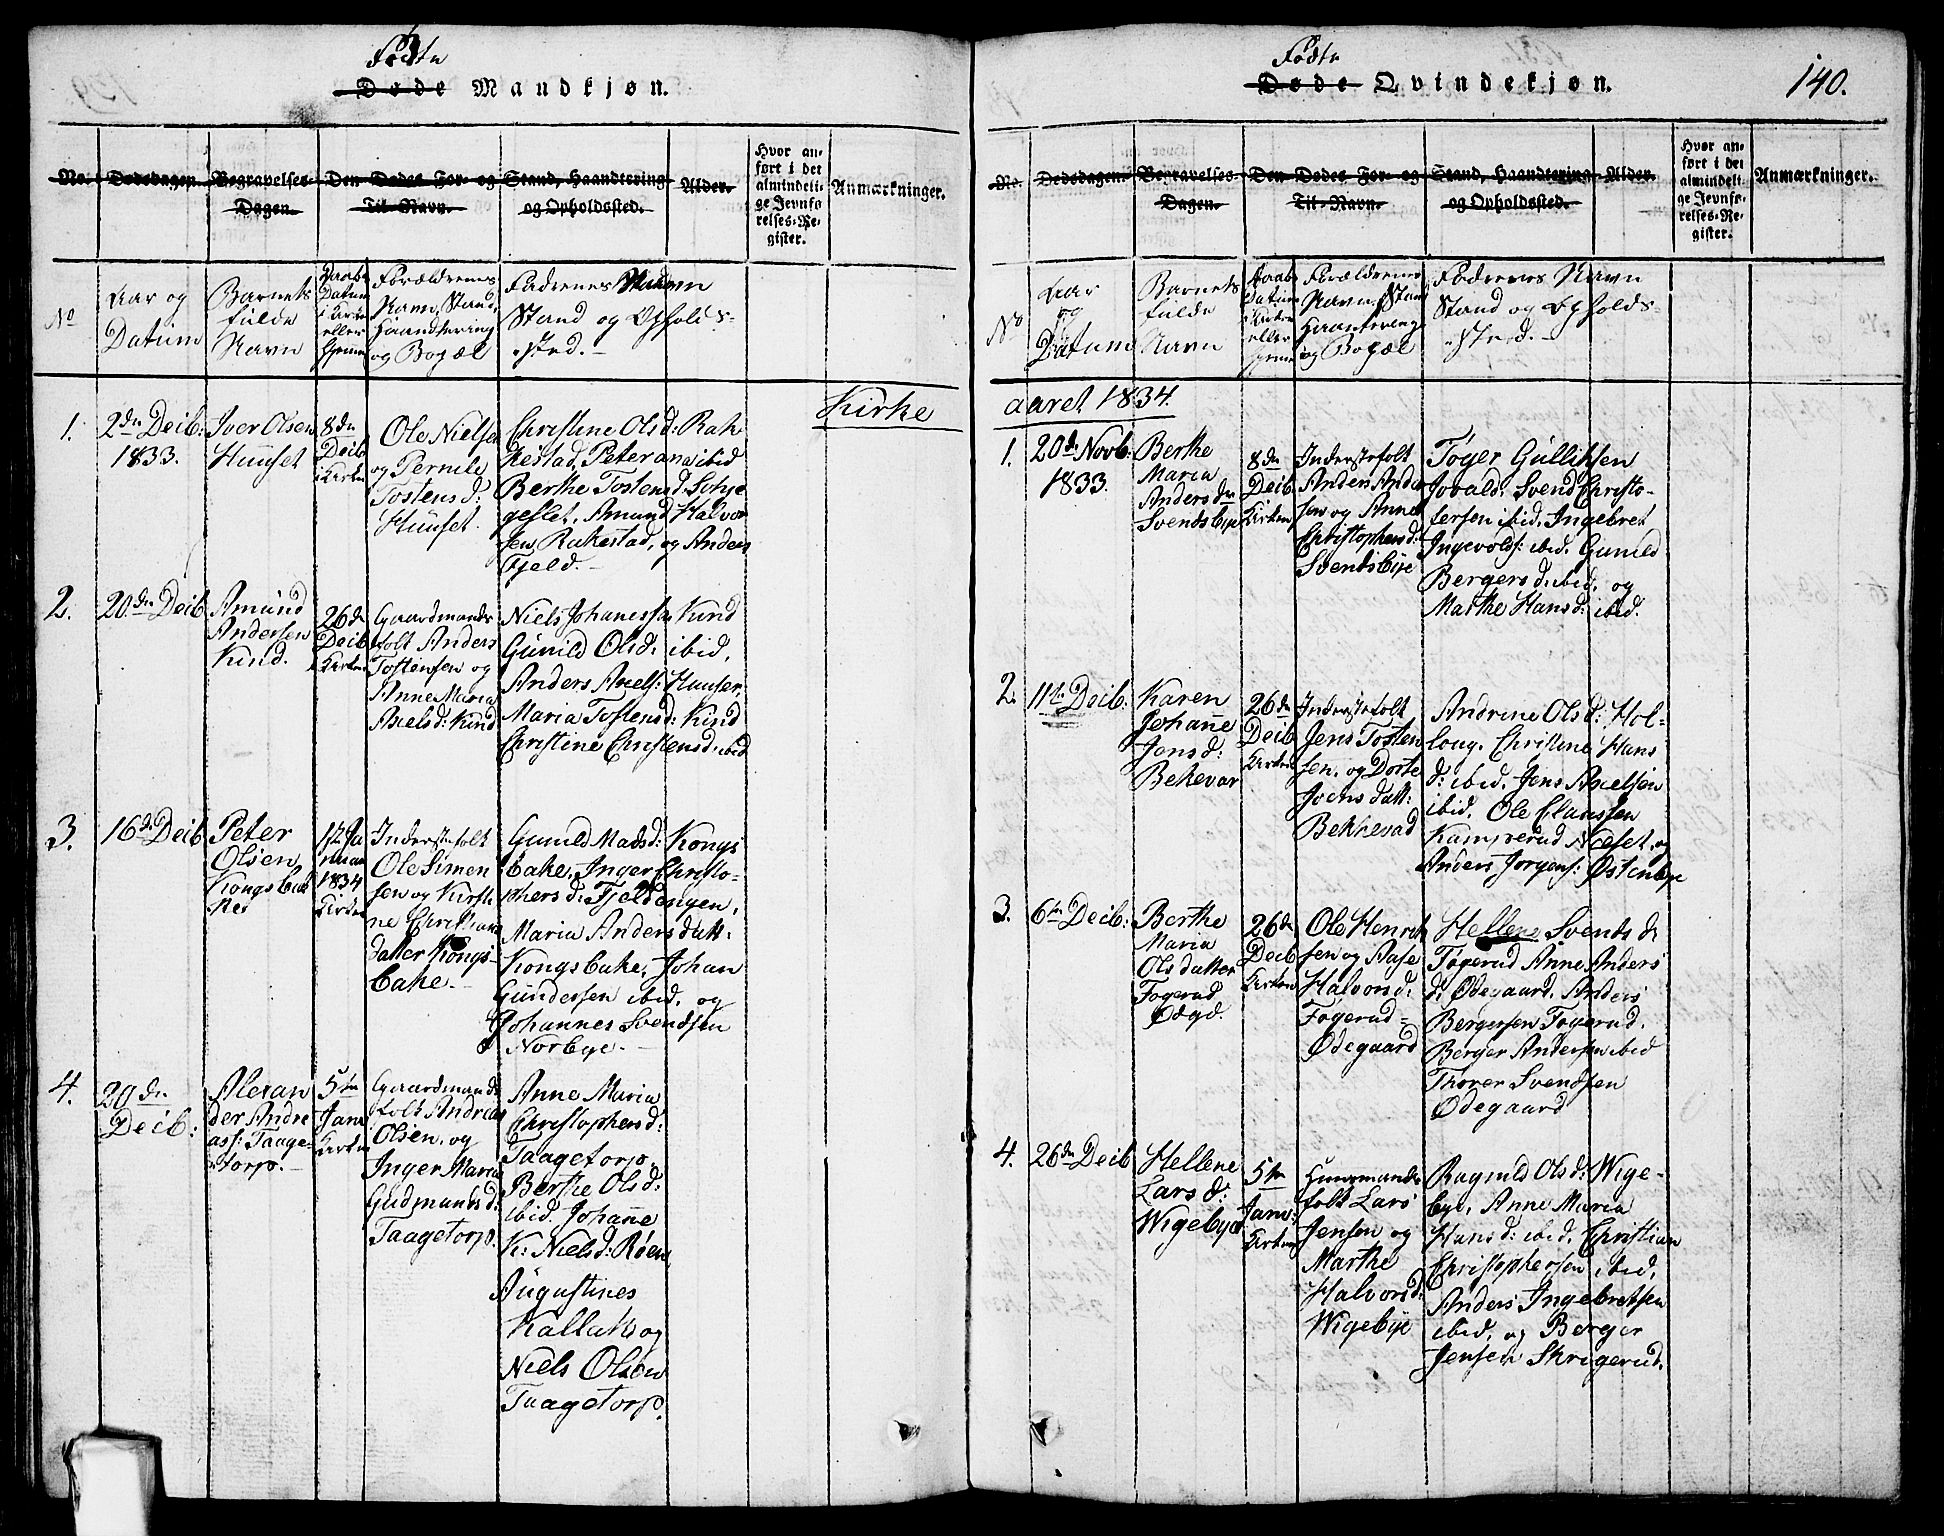 Fødte
Døde Mandkjøn.
No.
Dødsdagen.
Begravelses-
Dagen.
Den Dødes For- og
Til-Navn.
Stand, Haandtering
og Opholdssted.
Alder.
Hvor an-
ført i det
almindeli-
ge Jevnfø-
relses-Re-
gister.
Anmærkninger.
No
Aar og
Datum
Barnets
fulde
Navn
Daabs
Datum
i Kirke
eller
hjemme
Forældrenes
Navn, Stand,
Haandtering
og Bopæl
Faderenes Navn
Stand og Opholds-
sted.-
Kirke
1.
2den Decb:
1833.
Iver Olsen
Huuset
8de
Decb
i Kirken
Ole Nielsen
og Pernele
Tostensd:
Huuset.
Christine Olsd: Rak
kestad, Peterana ibid
Berthe Tostensd:
geslet, Amund Halvor
sen, Rakestad, og Anders
Fjeld.-
2.
20den Decb
Amund
Andersen
Kind.
26de
Decb
Kirken
Gaardmands
folk Anders
Tostensen og
Anne Maria
Axelsd: Kind
Niels Johanessen Kind
Gunild Olsd: ibid,
Anders Axels: Huuser,
Maria Tostensd: Kind
Christine Christensd: ibid
3.
16de Decb
Peter
Olsen
Kongsbak
ke
12 Ja
nuar
1834
Kirken
Inderstefolk
Ole Simen
sen og Kirsti
ne Christians
datter Kongs-
bake.-
Gunild Madsd: Kongs
bake, Inger Christo-
phersd: Fjeldengen,
Maria Andersdatt:
Kongsbake, Johan
Gundersen ibid, og
Johannes Svendsen
Norbye.-
4.
20den
Decb:
Alexan
der Andre
ass: Taage-
torp.-
5te
Janu
Kirken
Gaardmands
folk Andreas
Olsen, og
Inger Maria
Gudmundsd:
Taagetorp.
Anne Maria
Christophersd:
Taagetorp
Berthe Olsd:
ibid. Johane
K: Nielsd: Røen
Augustines
Kallak og
Niels Olsen
Taagetorp.
Fødte
Døde Qvindekjøn.
140.
No.
Dødsdagen.
Begravelses-
Dagen.
Den Dødes For- og
Til-Navn.
Stand, Haandtering
og Opholdssted.
Alder.
Hvor an-
ført i det
almindeli-
ge Jevnfø-
relses-Re-
gister.
Anmærkninger.
No
Aar
og
Datum
Barnets
fulde
Navn
Daabs
Datum
i Kirken
eller
hjemme
Forældrenes
Navn, Stand
Haantering
og Bopæl
Faderenes Navn
Stand og Opholds-
sted.-
aaret 1834.
1.
20de Novb:
1833.
Berthe
Maria
Andersdr
Svendsbye
8de
Decb
Kirken
Inderstefolk
Anders Ander
sen og Anne
Christophersd:
Svendsbye
Tøger Gulliksen
Jovald, Svend Christo-
fersen ibid, Ingebret
Ingevolds: ibid. Gunild
Bergersd: ibid, og
Marthe Hansd: ibid.
2.
11te Decb:
Karen
Johane
Jensd:
Bekevar
26de
Decb
Kirken
Inderstefolk
Jens Tosten
sen, og Dorte
Joensdatt:
Bekkevad
Andrine Olsd: Hol-
toug, Christine Hans
d: ibid, Jens Axelsen
ibid, Ole Clausen
Kamperud Næset, og
Anders Jorgens: Østenbye
3.
6te Decb:
Berthe
Maria
Olsdatter
Fogerud
Ødegd.
26de
Decb
Kirken
Ole Henrik
sen og Aase
Halvorsd:
Fogerud-
Ødegaard
Hellene Svends d:
Togerud Anne Anders
d: Ødegaard, Anders
Bergersen Togerud,
Berger Andersen ibid
Thorer Svendsen
Ødegaard
4.
26de Decb
Hellene
Lars d:
Wigebye
5te
Janu:
Kirken
Huusmands
folk Lars
Jensen og
Marthe
Halvorsd:
Wigebye
Ragnild Olsd: Wige-
bye, Anne Maria
Hansd: ibid, Christian
Christophersen ibid,
Anders Ingebretsen
ibid, og Berger
Jensen Skrigerud.